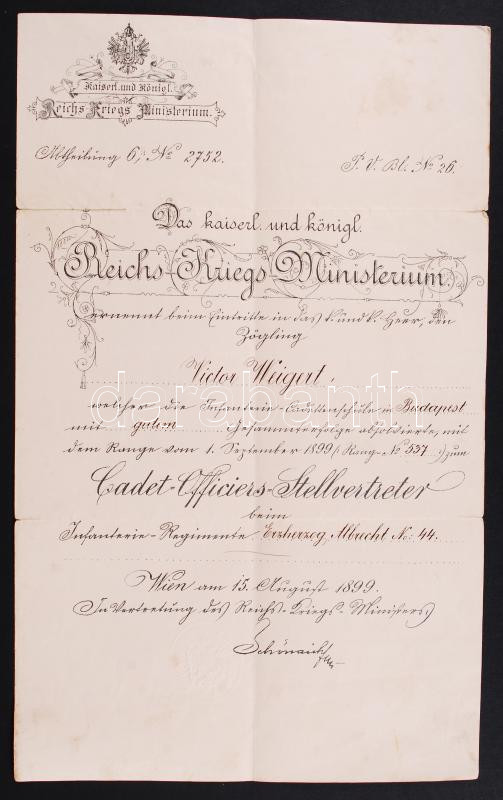 Kaiserl. und Königl.
Reichs Kriegs Ministerium.
Abtheilung 6, No 2752.
P. V. Bl. No 26.
Das kaiserl. und königl.
Reichs-Kriegs-Ministerium
ernennt beim Eintritte in das k. und k. Heer, den
Zögling
Victor Weigert,
welcher die Infanterie-Cadettenschule in Budapest
mit gutem Gesammterfolge absolvierte, mit
dem Range vom 1. September 1899 (Rang-No 537) zum
Cadet-Officiers-Stellvertreter
beim
Infanterie-Regimente Erzherzog Albrecht No: 44.
Wien am 15. August 1899.
In Vertretung des Reichs-Kriegs-Ministers
Schönaich
darabanth